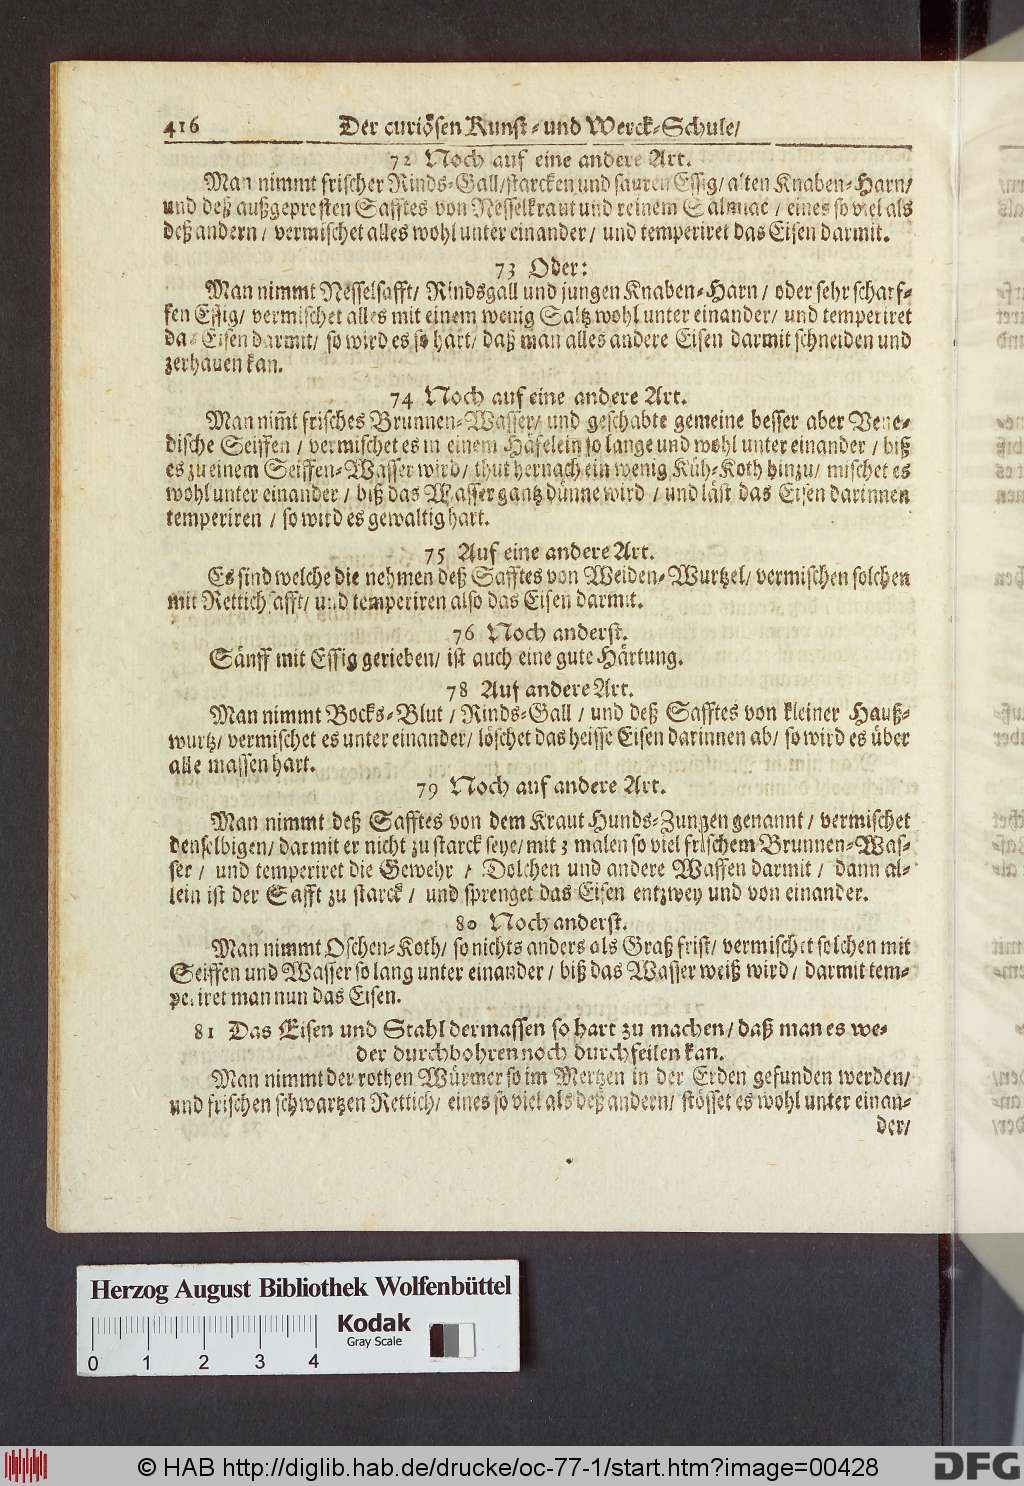 416 Der curiösen Kunst- und Werck-Schule/
72 Noch auf eine andere Art.
Man nimmt frischer Rinds-Gall/starcken und sauren Essig/ alten Knaben-Harn/
und deß außgepresten Safftes von Nesselkraut und reinem Salmiac / eines so viel als
deß andern / vermischet alles wohl unter einander / und temperiret das Eisen darmit.
73 Oder:
Man nimmt Nesselsafft/ Rindsgall und jungen Knaben-Harn / oder sehr scharf-
fen Essig/ vermischet alles mit einem wenig Saltz wohl unter einander/ und temperiret
das Eisen darmit/ so wird es so hart/ daß man alles andere Eisen darmit schneiden und
zerhauen kan.
74 Noch auf eine andere Art.
Man nim̃t frisches Brunnen-Wasser/ und geschabte gemeine besser aber Vene-
dische Seiffen / vermischet es in einem Häfelein so lange und wohl unter einander / biß
es zu einem Seiffen-Wasser wird/ thut hernach ein wenig Küh-Koth hinzu/ mischet es
wohl unter einander / biß das Wasser gantz dünne wird / und läst das Eisen darinnen
temperiren / so wird es gewaltig hart.
75 Auf eine andere Art.
Es sind welche die nehmen deß Safftes von Weiden-Wurtzel/ vermischen solchen
mit Rettichsafft/ und temperiren also das Eisen darmit.
76 Noch anderst.
Sänff mit Essig gerieben/ ist auch eine gute Härtung.
78 Auf andere Art.
Man nimmt Bocks-Blut / Rinds-Gall / und deß Safftes von kleiner Hauß-
wurtz/ vermischet es unter einander/ löschet das heisse Eisen darinnen ab/ so wird es über
alle massen hart.
79 Noch auf andere Art.
Man nimmt deß Safftes von dem Kraut Hunds-Zungen genannt / vermischet
denselbigen/ darmit er nicht zu starck seye/ mit 3 malen so viel frischem Brunnen-Was-
ser / und temperiret die Gewehr / Dolchen und andere Waffen darmit / dann al-
lein ist der Safft zu starck / und sprenget das Eisen entzwey und von einander.
80 Noch anderst.
Man nimmt Ochsen-Koth/ so nichts anders als Graß frist/ vermischet solchen mit
Seiffen und Wasser so lang unter einander / biß das Wasser weiß wird / darmit tem-
periret man nun das Eisen.
81 Das Eisen und Stahl dermassen so hart zu machen/ daß man es we-
der durchbohren noch durchfeilen kan.
Man nimmt der rothen Würmer so im Mertzen in der Erden gefunden werden/
und frischen schwartzen Rettich/ eines so viel als deß andern/ stösset es wohl unter einan-
der/
Herzog August Bibliothek Wolfenbüttel
Kodak
Gray Scale
0 1 2 3 4
© HAB http://diglib.hab.de/drucke/oc-77-1/start.htm?image=00428
DFG